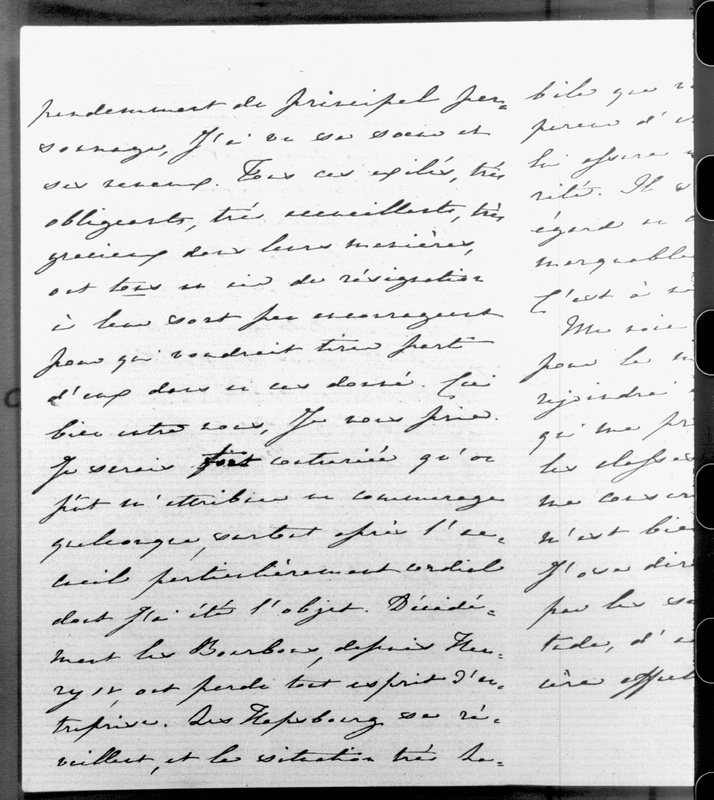 pendemment du principal per=
sonnage, J'ai vu sa soeur et
ses neveux. Tous ces exilés, très
obligeants, très accueillants, très
gracieux dans leurs manières,
ont tous un air de résignation
à leur sort peu encourageant
pour qui voudrait tirer parti
d'eux dans un cas donné. Ceci
bien entre nous, Je vous prie.
Je serais fort contrariée qu'on
pût m'attribuer un commérage
quelconque, surtout après l'ac=
cueil particulièrement cordial
dont J'ai été l'objet. Décidé=
ment les Bourbons, depuis Hen=
ry IV, ont perdu tout esprit d'en=
treprise. Les Hapsbourg se ré=
veillent, et la situation très ha=
bile que
perçu d'
lui assure
rité. Il
égard
marquable
C'est à
Me
pour le
rejoindre
qui me pr
les classes
me conser
n'est bien
J'ose dire
par les
tude, d'
cère affect